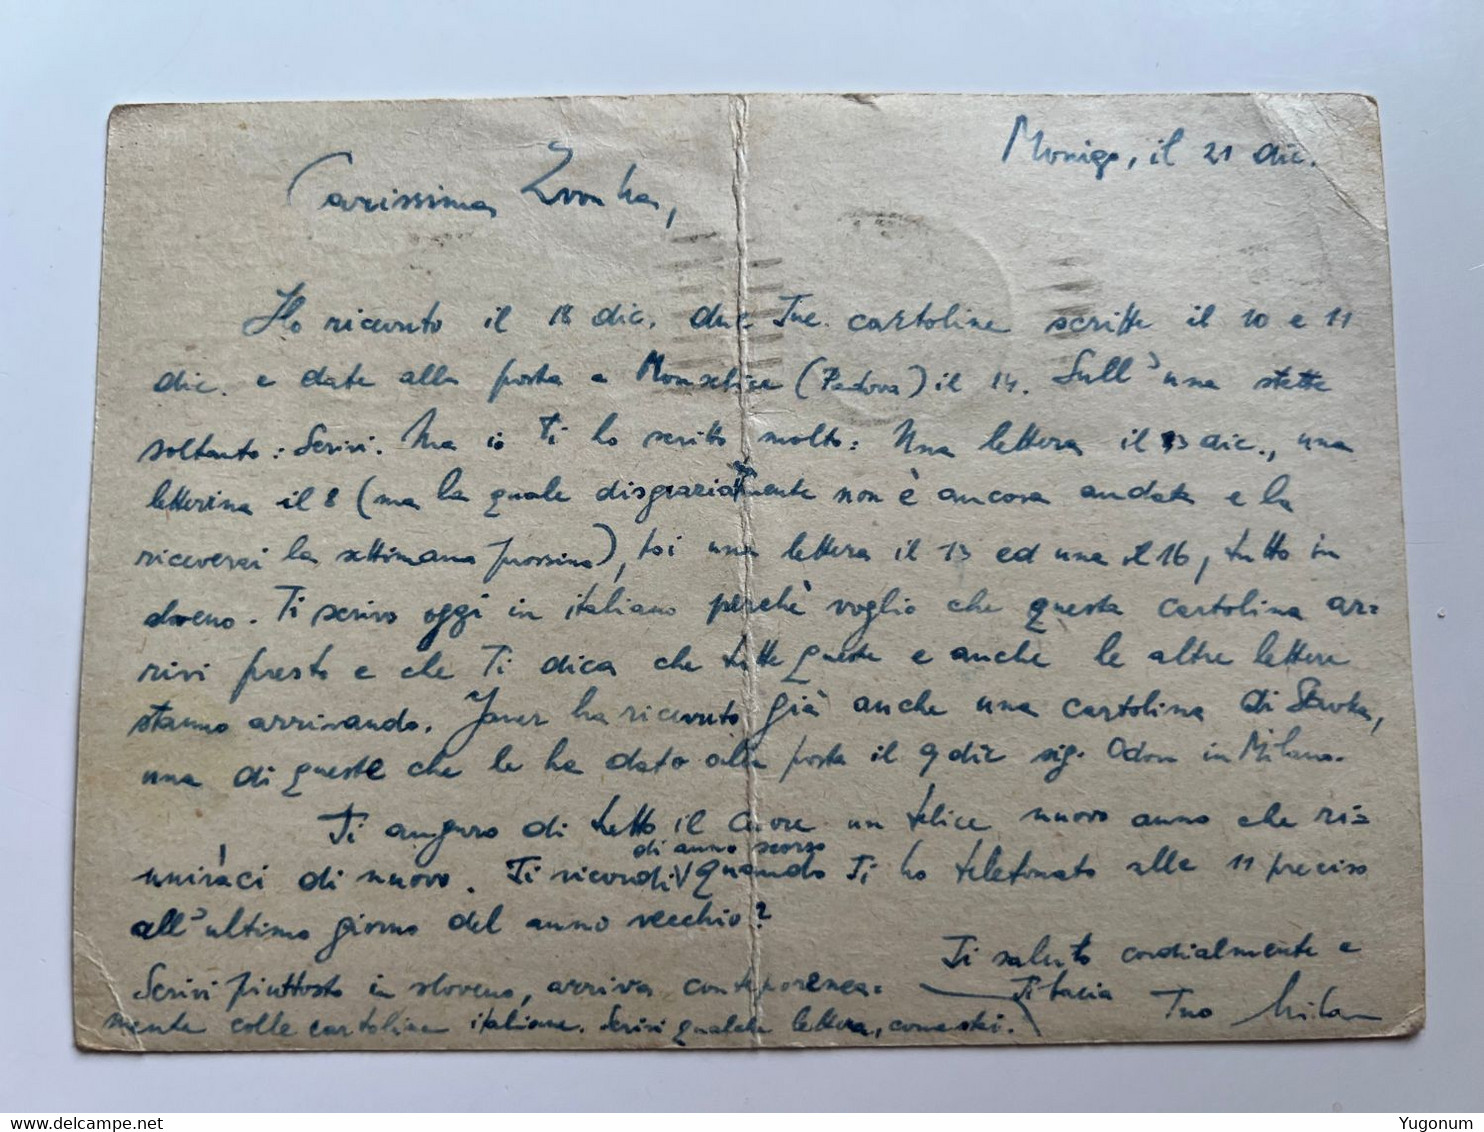 Monigo, il 21 dic.
Carissima Zvonka,
Ho ricevuto il 18 dic. due Tue cartoline scritte il 10 e 11
dic. e date alla posta a Monselice (Padova) il 14. Sull'una stette
soltanto: Scrivi. Ma io Ti ho scritto molto: Una lettera il 3 dic., una
letterina il 8 (ma la quale disgraziatamente non è ancora andata e la
riceverai la settimana prossima), poi una lettera il 13 ed una il 16, tutto in
sloveno. Ti scrivo oggi in italiano perchè voglio che questa cartolina ar-
rivi presto e che Ti dica che tutte queste e anche le altre lettere
stanno arrivando. ha ricevuto già anche una cartolina di Slavka,
una di queste che le ha dato alla posta il 9 dic sig. in Milano.
Ti auguro di tutto il cuore un felice nuovo anno che ri=
uniràci di nuovo. Ti ricordi di anno scorso quando Ti ho telefonato alle 11 preciso
all'ultimo giorno del anno vecchio?
Ti saluto cordialmente e
Scrivi piuttosto in sloveno, arriva contemporanea-
Ti bacia Tuo Milan
mente colle cartoline italiane. Scrivi qualche lettera, come stai.
Yugonum
delcampe.net